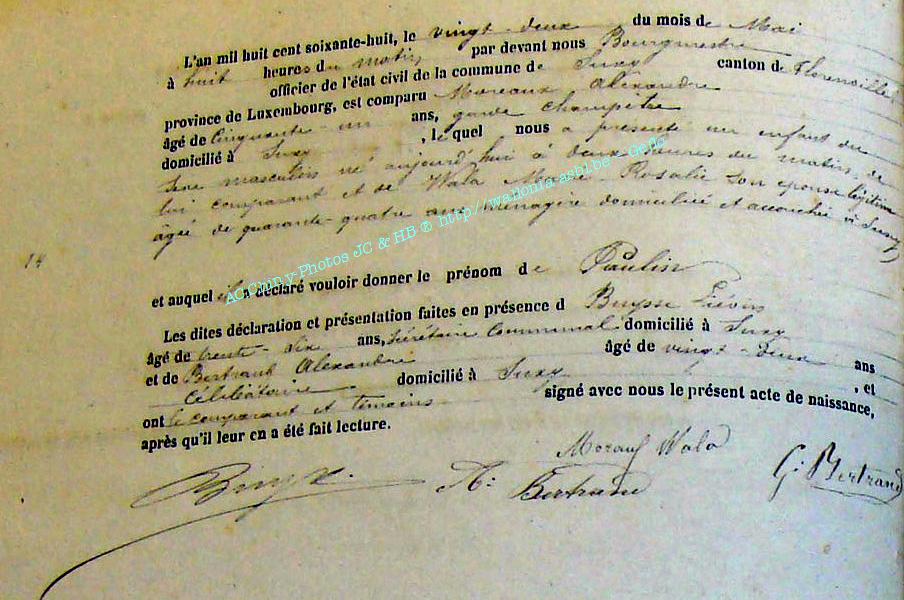 L'an mil huit cent soixante-huit, le vingt-deux du mois de Mai
à huit heures du matin, par devant nous Bourgmestre
officier de l'état civil de la commune de Suxy canton de Florenville
province de Luxembourg, est comparu Moreaux Alexandre
âgé de Cinquante-un ans, garde champêtre
domicilié à Suxy, lequel nous a présenté un enfant du
Sexe masculin né aujourd'hui à deux heures du matin, de
lui comparant et de Wala Marie-Rosalie son épouse légitime
âgée de quarante-quatre ans ménagère domiciliée et accouchée à Suxy
14
et auquel il a déclaré vouloir donner le prénom de Paulin
Les dites déclaration et présentation faites en présence d Buysse Liévin
âgé de trente-six ans, Sécrétaire Communal domicilié à Suxy
et de Bertrand Alexandre âgé de vingt-deux ans
Célibataire domicilié à Suxy, et
ont le comparant et témoins signé avec nous le présent acte de naissance,
après qu'il leur en a été fait lecture.
Moraux Wala
A: Bertrand
G: Bertrand
AC Chiny-Photos JC & HB ® http://wallonia-asbl.be - Gefic